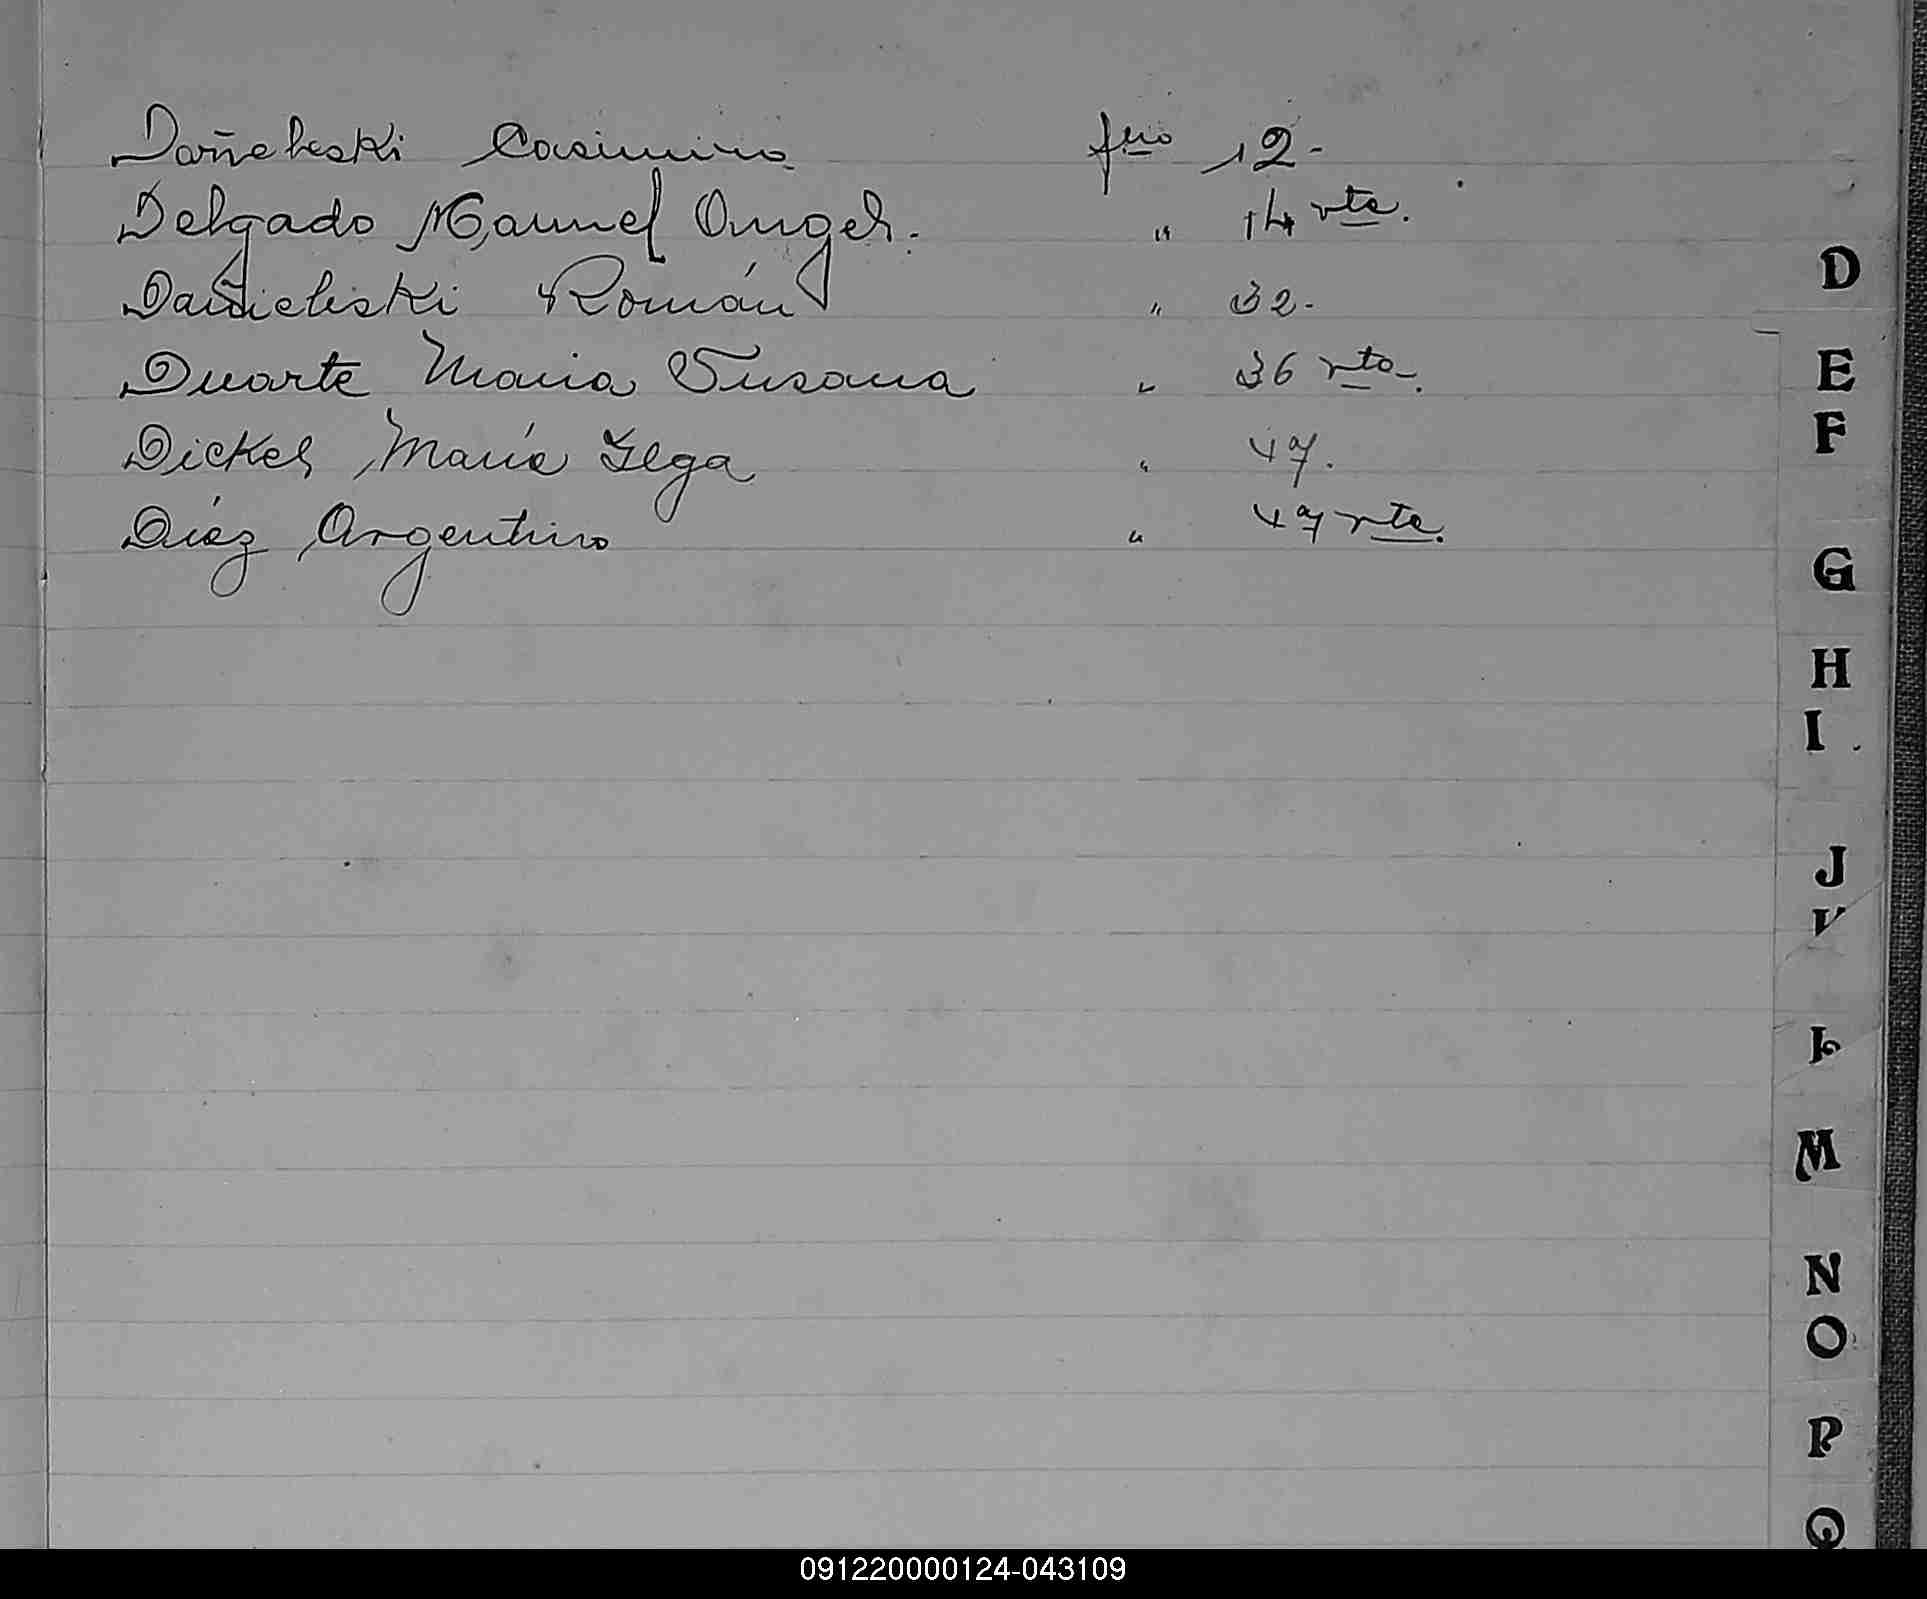 Dañeleski Casimiro fno 12.-
Delgado Manuel Angel. " 14 vta.
Dañieleski Román " 32.-
Duarte Maria Susana " 36 vta.
Dickel María Ilga " 47.
Díaz Argentino " 47 vta.
D
E
F
G
H
I
J
L
M
N
O
P
Q
091220000124-043109